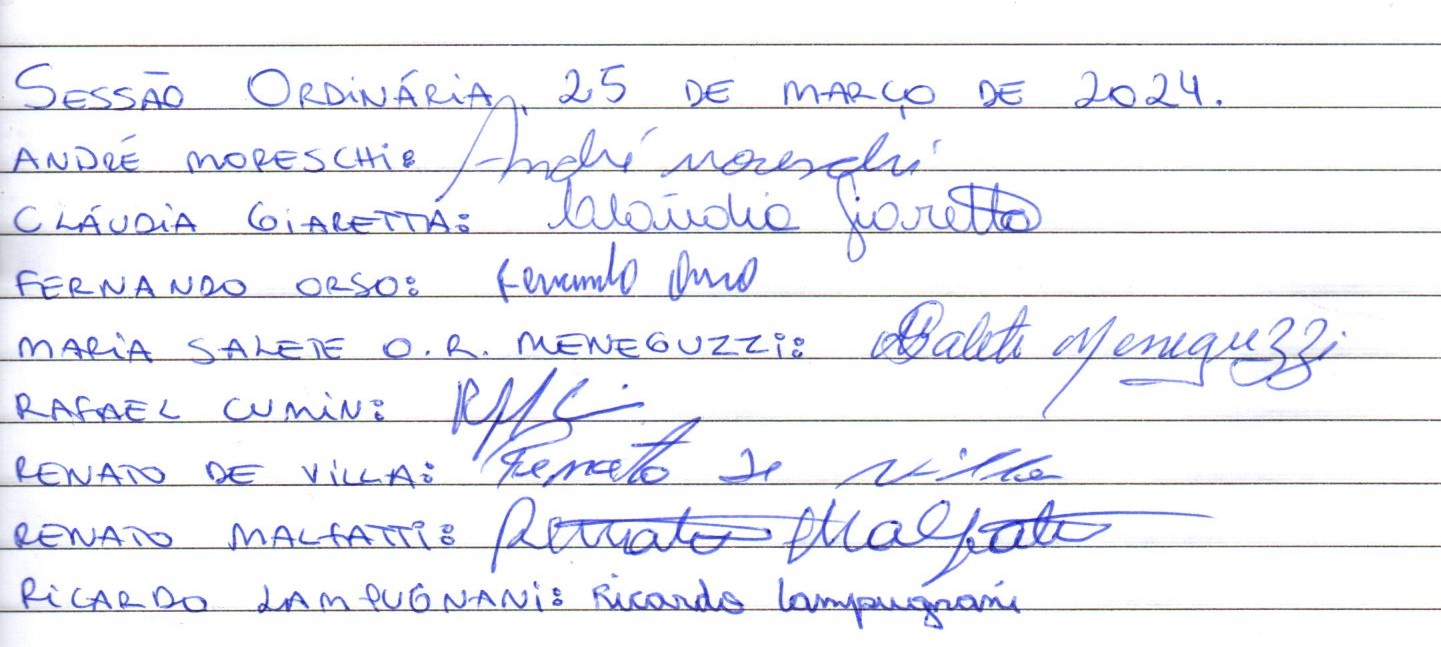 SESSÃO ORDINÁRIA, 25 DE MARÇO DE 2024.
ANDRÉ MORESCHI: André Moreschi
CLÁUDIA GIARETTA: Claúdia Giaretta
FERNANDO ORSO: Fernando Orso
MARIA SALETE O. R. MENEGUZZI: Salete Meneguzzi
RAFAEL CUMIN:
RENATO DE VILLA: Renato de Villa
RENATO MALFATTI: Renato Malfatti
RICARDO LAMPUGNANI: Ricardo Lampugnani